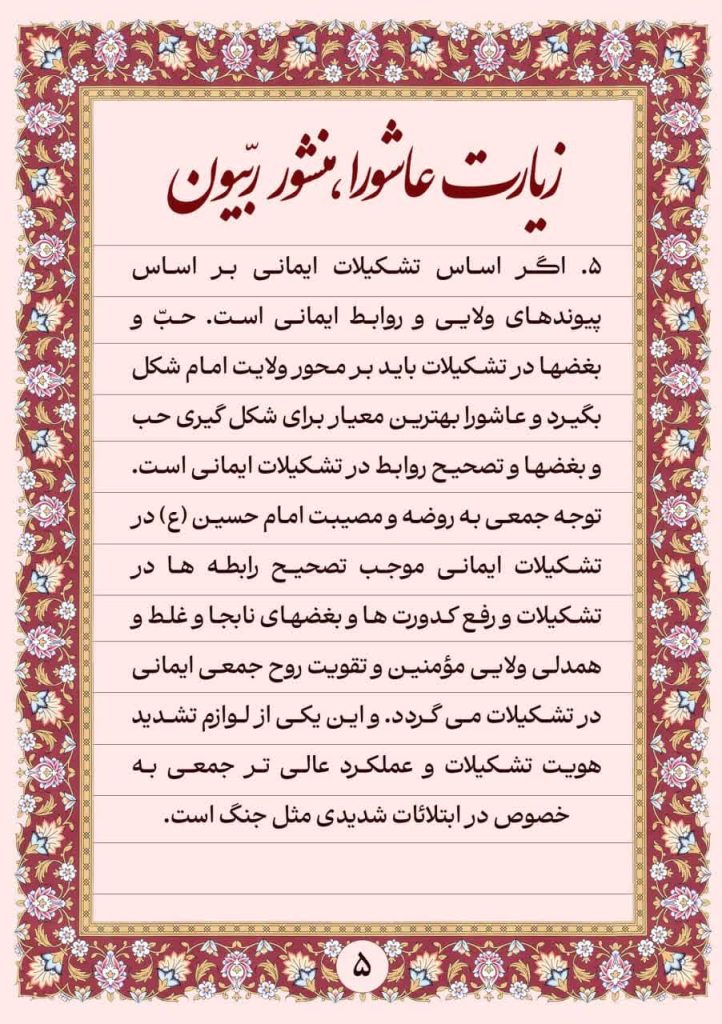 زیارت عاشورا، منشور ربّیون
۵. اگر اساس تشکیلات ایمانی بر اساس
پیوندهای ولایی و روابط ایمانی است. حبّ و
بغضها در تشکیلات باید بر محور ولایت امام شکل
بگیرد و عاشورا بهترین معیار برای شکل گیری حب
و بغضها و تصحیح روابط در تشکیلات ایمانی است.
توجه جمعی به روضه و مصیبت امام حسین (ع) در
تشکیلات ایمانی موجب تصحیح رابطه ها در
تشکیلات و رفع کدورت ها و بغضهای نابجا و غلط و
همدلی ولایی مؤمنین و تقویت روح جمعی ایمانی
در تشکیلات می گردد. و این یکی از لوازم تشدید
هویت تشکیلات و عملکرد عالی تر جمعی به
خصوص در ابتلائات شدیدی مثل جنگ است.
۵